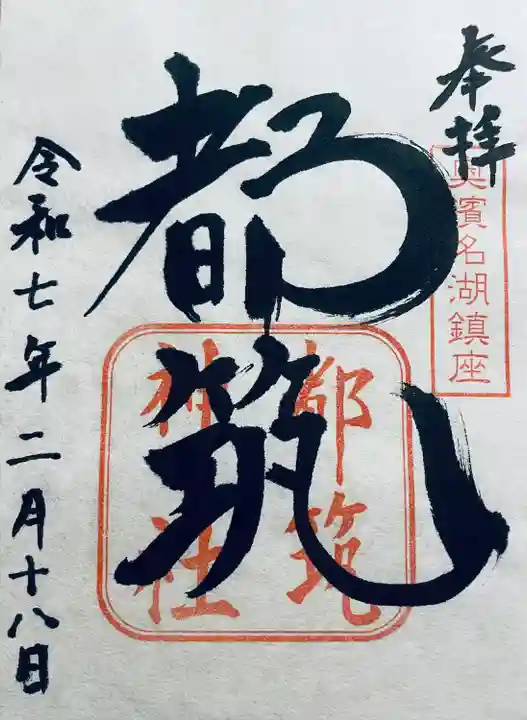 奉拝
奥濱名湖鎮座
都筑
都筑
神社
令和七年二月十八日